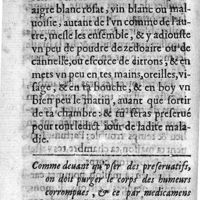 aigre blanc rosat, vin blanc ou mal-
uoisie, autant de l'vn comme de l'au-
tre, mesle les ensemble, & y adiouste
vn peu de poudre de zedoaire ou de
cannelle, ou escorce de citrons, & en
mets vn peu en tes mains, oreilles, vi-
sage, & en ta bouche, & en boy vn
bien peu le matin, auant que sortir
de ta chambre: & tu seras preserué
pour tout ledict iour de ladite mala-
die.
Comme deuant qu'vser des preseruatifs,
on doit purger le corps des humeurs
corrompues, & ce par medicamens